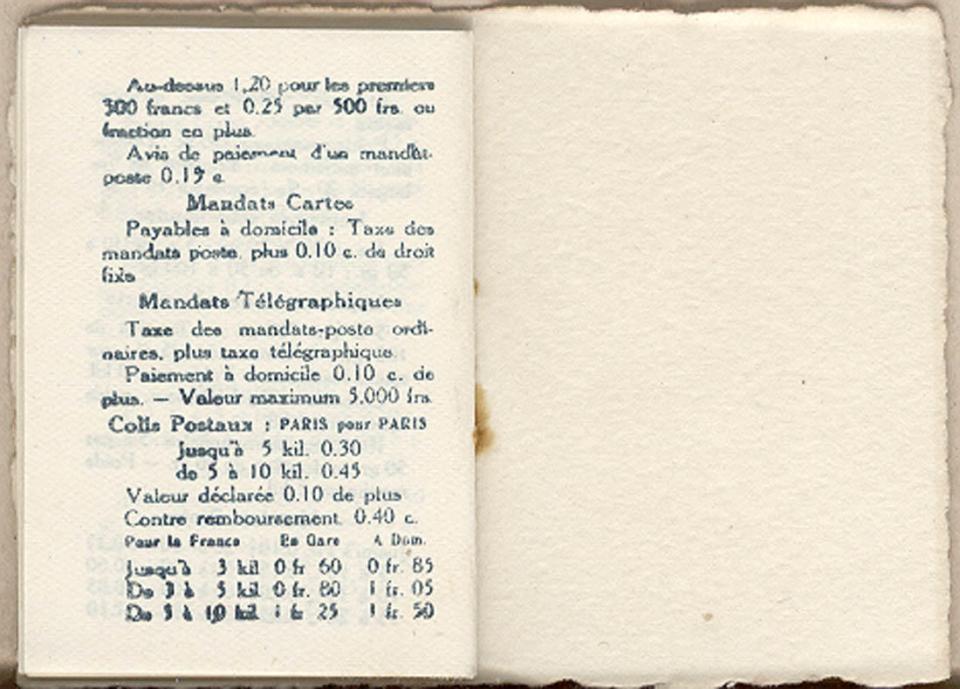 Au-dessus 1,20 pour les premiers
300 francs et 0.25 par 500 frs. ou
fraction en plus.
Avis de paiement d'un mandat-
poste 0.15 c.
Mandats Cartes
Payables à domicile : Taxe des
mandats poste, plus 0.10 c. de droit
fixe
Mandats Télégraphiques
Taxe des mandats-poste ordi-
naires, plus taxe télégraphique
Paiement à domicile 0.10 c. de
plus. — Valeur maximum 5.000 frs.
Colis Postaux : PARIS pour PARIS
Jusqu'à 5 kil. 0.30
de 5 à 10 kil. 0.45
Valeur déclarée 0.10 de plus
Contre remboursement 0.40 c.
Pour la France En Gare A Dom.
Jusqu'à 3 kil 0 fr 60 0 fr. 85
De 3 à 5 kil 0 fr. 80 1 fr. 05
De 5 à 10 kil 1 fr 25 1 fr. 50